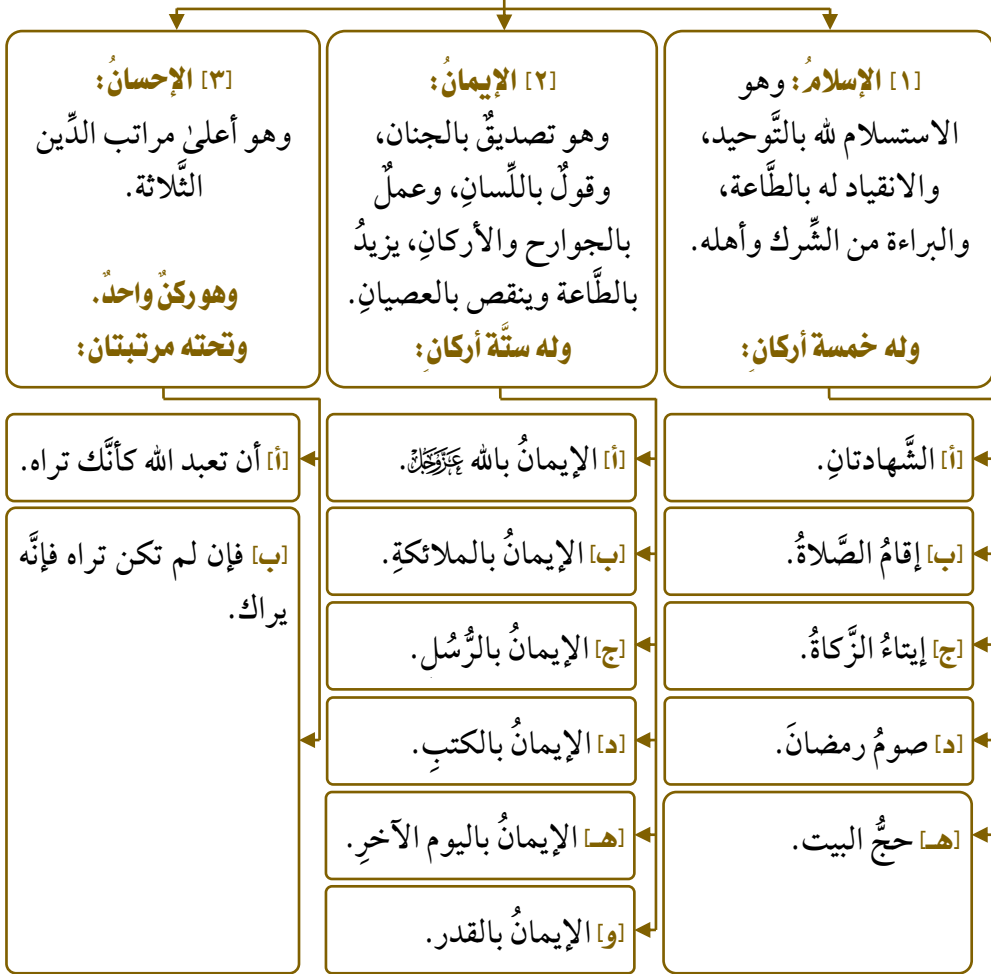 [١] الإسلامُ: وهو
الاستسلام لله بالتَّوحيد،
والانقياد له بالطَّاعة،
والبراءة من الشِّرك وأهله.
وله خمسة أركانٍ:
[أ] الشَّهادتانِ.
[ب] إقامُ الصَّلاةُ.
[ج] إيتاءُ الزَّكاةُ.
[د] صومُ رمضانَ.
[هـ] حجُّ البيت.
[٢] الإيمانُ:
وهو تصديقٌ بالجنان،
وقولٌ باللِّسانِ، وعملٌ
بالجوارح والأركانِ، يزيدُ
بالطَّاعة وينقص بالعصيانِ.
وله ستَّة أركانٍ:
[أ] الإيمانُ بالله عَزَّوَجَلَّ.
[ب] الإيمانُ بالملائكةِ.
[ج] الإيمانُ بالرُّسُلِ.
[د] الإيمانُ بالكتبِ.
[هـ] الإيمانُ باليوم الآخرِ.
[و] الإيمانُ بالقدر.
[٣] الإحسانُ:
وهو أعلىٰ مراتب الدِّين
الثَّلاثة.
وهو ركنٌ واحدٌ.
وتحته مرتبتان:
[أ] أن تعبد الله كأنَّك تراه.
[ب] فإن لم تكن تراه فإنَّه
يراك.